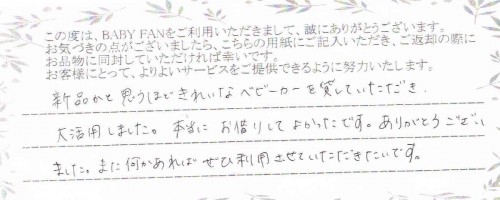 この度は、BABY FANをご利用いただきまして、誠にありがとうございます。
お気づきの点がございましたら、こちらの用紙にご記入いただき、ご返却の際に
お品物に同封していただければ幸いです。
お客様にとって、よりよいサービスをご提供できるように努力いたします。
新品かと思うほどきれいなベビーカーを貸していただき、
大活用しました。本当にお借りしてよかったです。ありがとうござい
ました。また何かあればぜひ利用させていただきたいです。